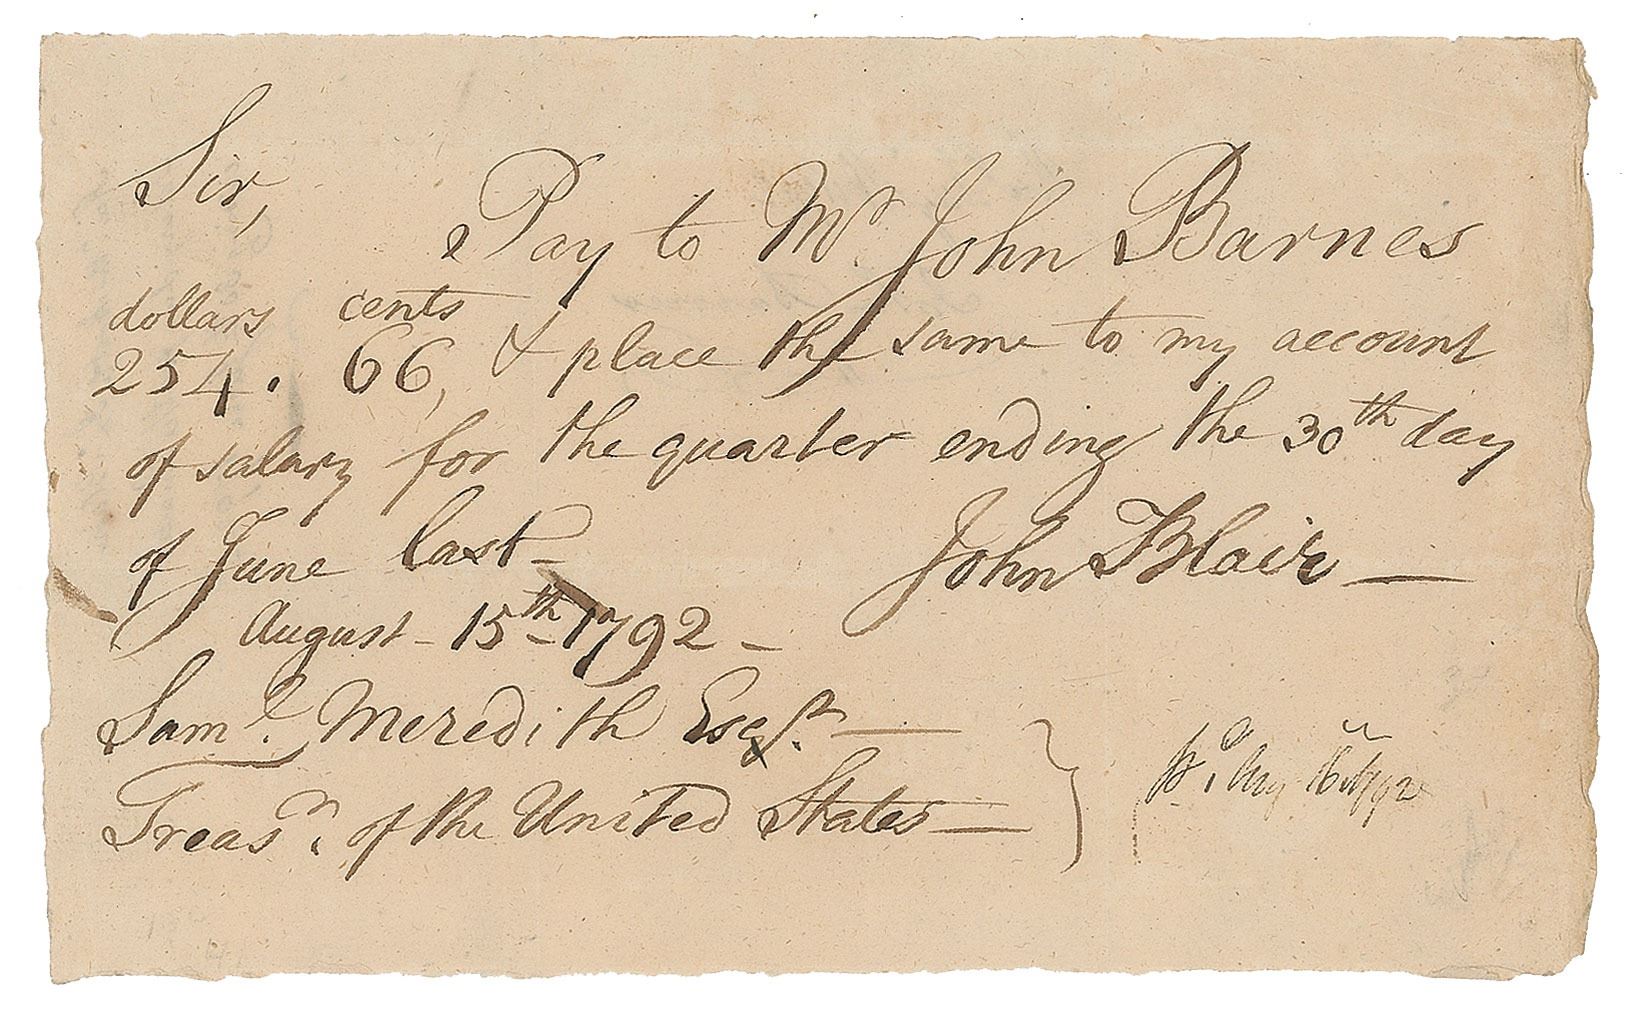 Sir,
Pay to Mr. John Barnes
dollars cents
254. 66, & place the same to my account
of salary for the quarter ending the 30th day
of June last—
John Blair—
August— 15th 1792—
Saml. Meredith Esqr.—
Treasr. of the United States—